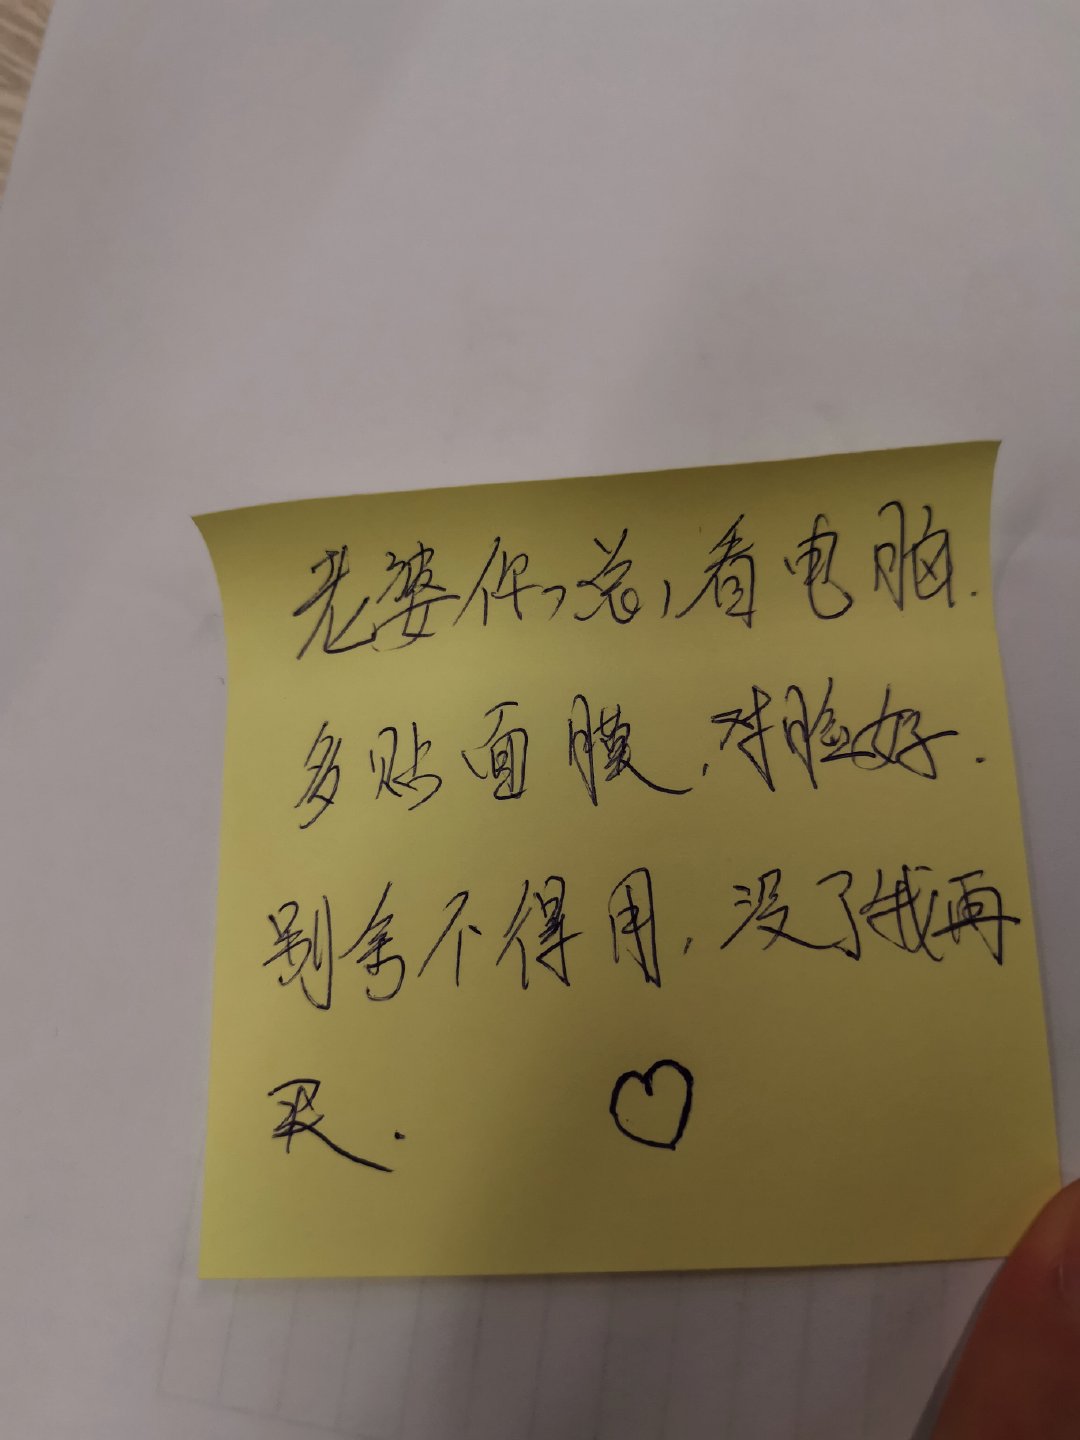 老婆你,总,看电脑.
多贴面膜,对脸好.
别舍不得用,没了我再
买.